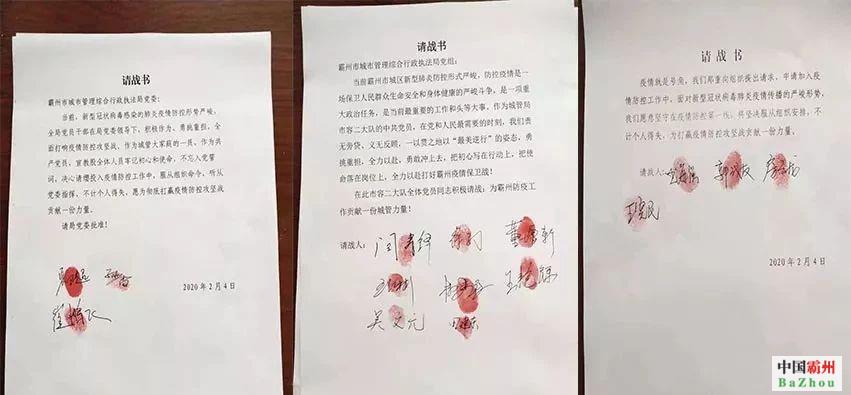 请战书
霸州市城市管理综合行政执法局党委：
当前，新型冠状病毒感染的肺炎疫情防控形势严峻，
全局党员干部在局党委领导下，积极作为、勇挑重担，全
面打响疫情防控攻坚战。作为城管大家庭的一员，作为共
产党员，宣教股全体人员牢记初心和使命，不忘入党誓
词，决心请缨投入疫情防控工作中，服从组织命令，听从
党委指挥，不计个人得失，愿为彻底打赢疫情防控攻坚战
贡献一份力量。
请局党委批准！
2020年2月4日
请战书
霸州市城市管理综合行政执法局党组：
当前霸州市城区新型肺炎防控形式严峻，防控疫情是一
场保卫人民群众生命安全和身体健康的严峻斗争，是一项重
大政治任务，是当前最重要的工作和头等大事，作为城管局
市容二大队的中共党员，在党和人民最需要的时刻，我们责
无旁贷、义无反顾，一以贯之地以“最美逆行”的姿态，勇
挑重担，全力以赴，勇敢冲上去，把初心写在行动上，把使
命落在岗位上，全力以赴打好霸州疫情保卫战！
在此市容二大队全体党员同志积极请战：为霸州防疫工
作贡献一份城管力量！
请战人：
吴文元
2020年2月4日
请战书
疫情就是号角，我们郑重向组织提出请求，申请加入疫
情防控工作中，面对新型冠状病毒肺炎疫情传播的严峻形势，
我们愿意坚守在疫情防控第一线，将坚决服从组织安排，不
计个人得失，为打赢疫情防控攻坚战贡献一份力量。
请战人：
2020年2月4日
中国霸州
BaZhou